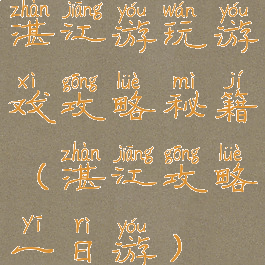 zhàn jiāng yóu wán yóu
湛江游玩游
xì gōng lüè mì jí
戏攻略秘籍
zhàn jiāng gōng lüè
(湛江攻略
yī rì yóu
一日游)